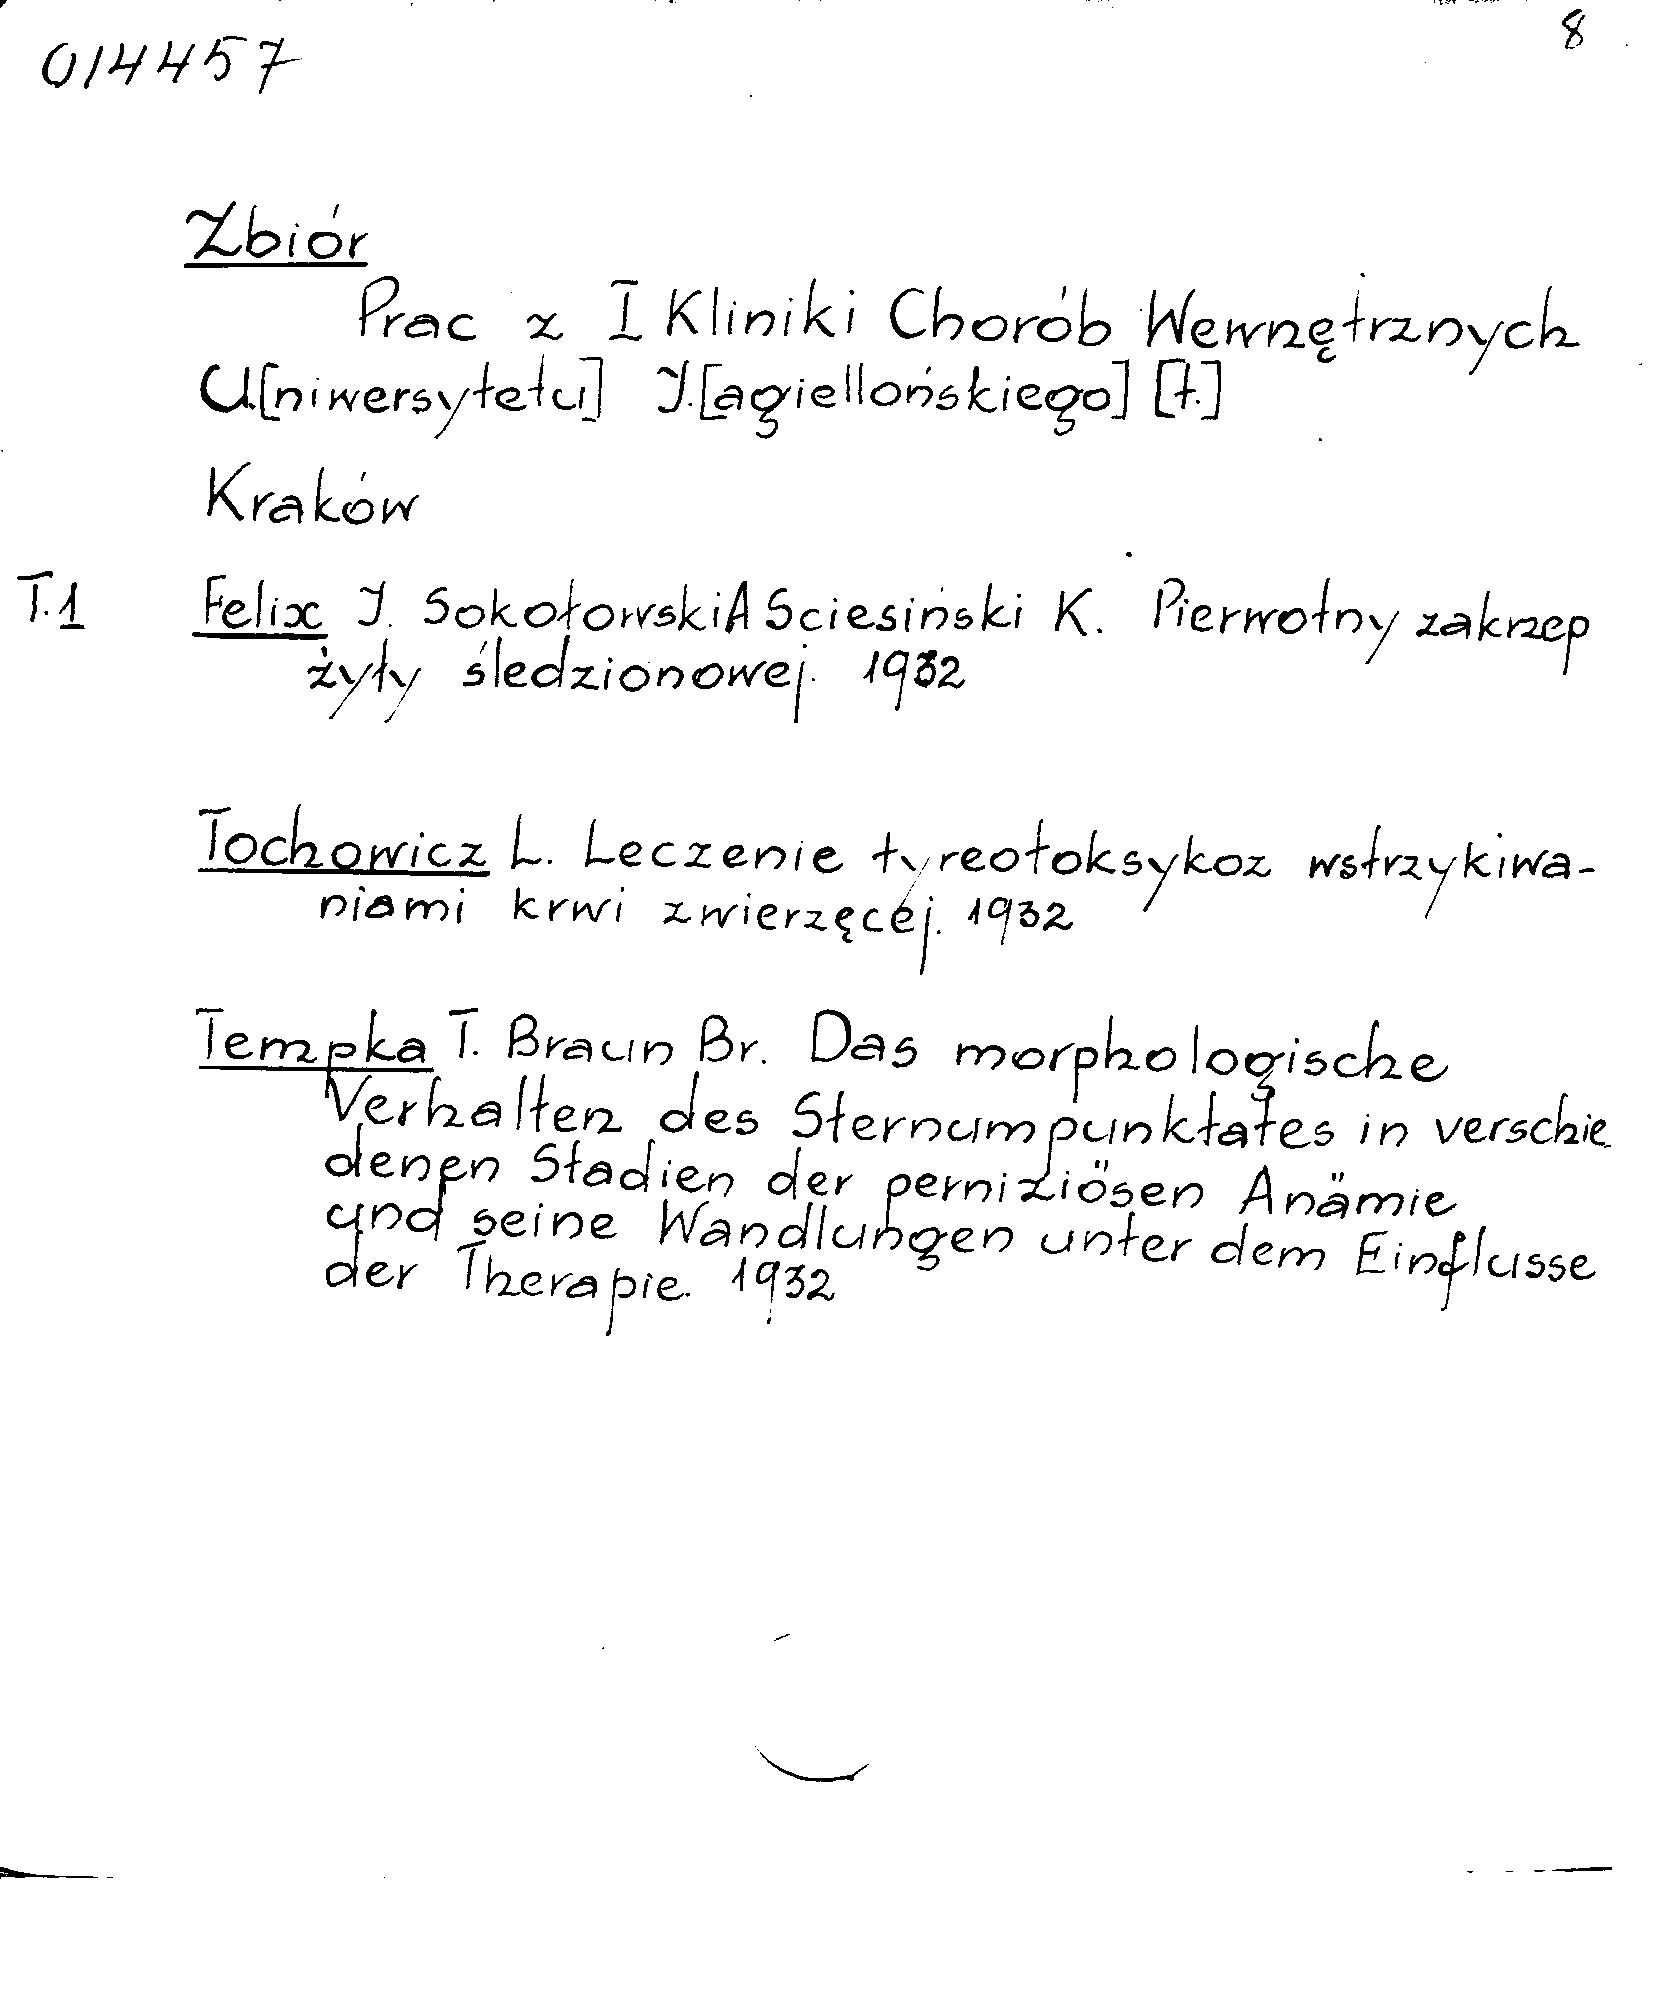 014457
8
Zbiór
Prac z I Kliniki Chorób Wewnętrznych
U.[niwersytetu] J.[agiellońskiego] [t.]
Kraków
T.1 Felix J. Sokołowski A Sciesiński K. Pierwotny zakrzep
żyły śledzionowej. 1932
Tochowicz L. Leczenie tyreotoksykoz wstrzykiwa-
niami krwi zwierzęcej. 1932
Tempka T. Braun Br. Das morphologische
Verhalten des Sternumpunktates in verschie
denen Stadien der perniziösen Anämie
und seine Wandlungen unter dem Einflusse
der Therapie. 1932